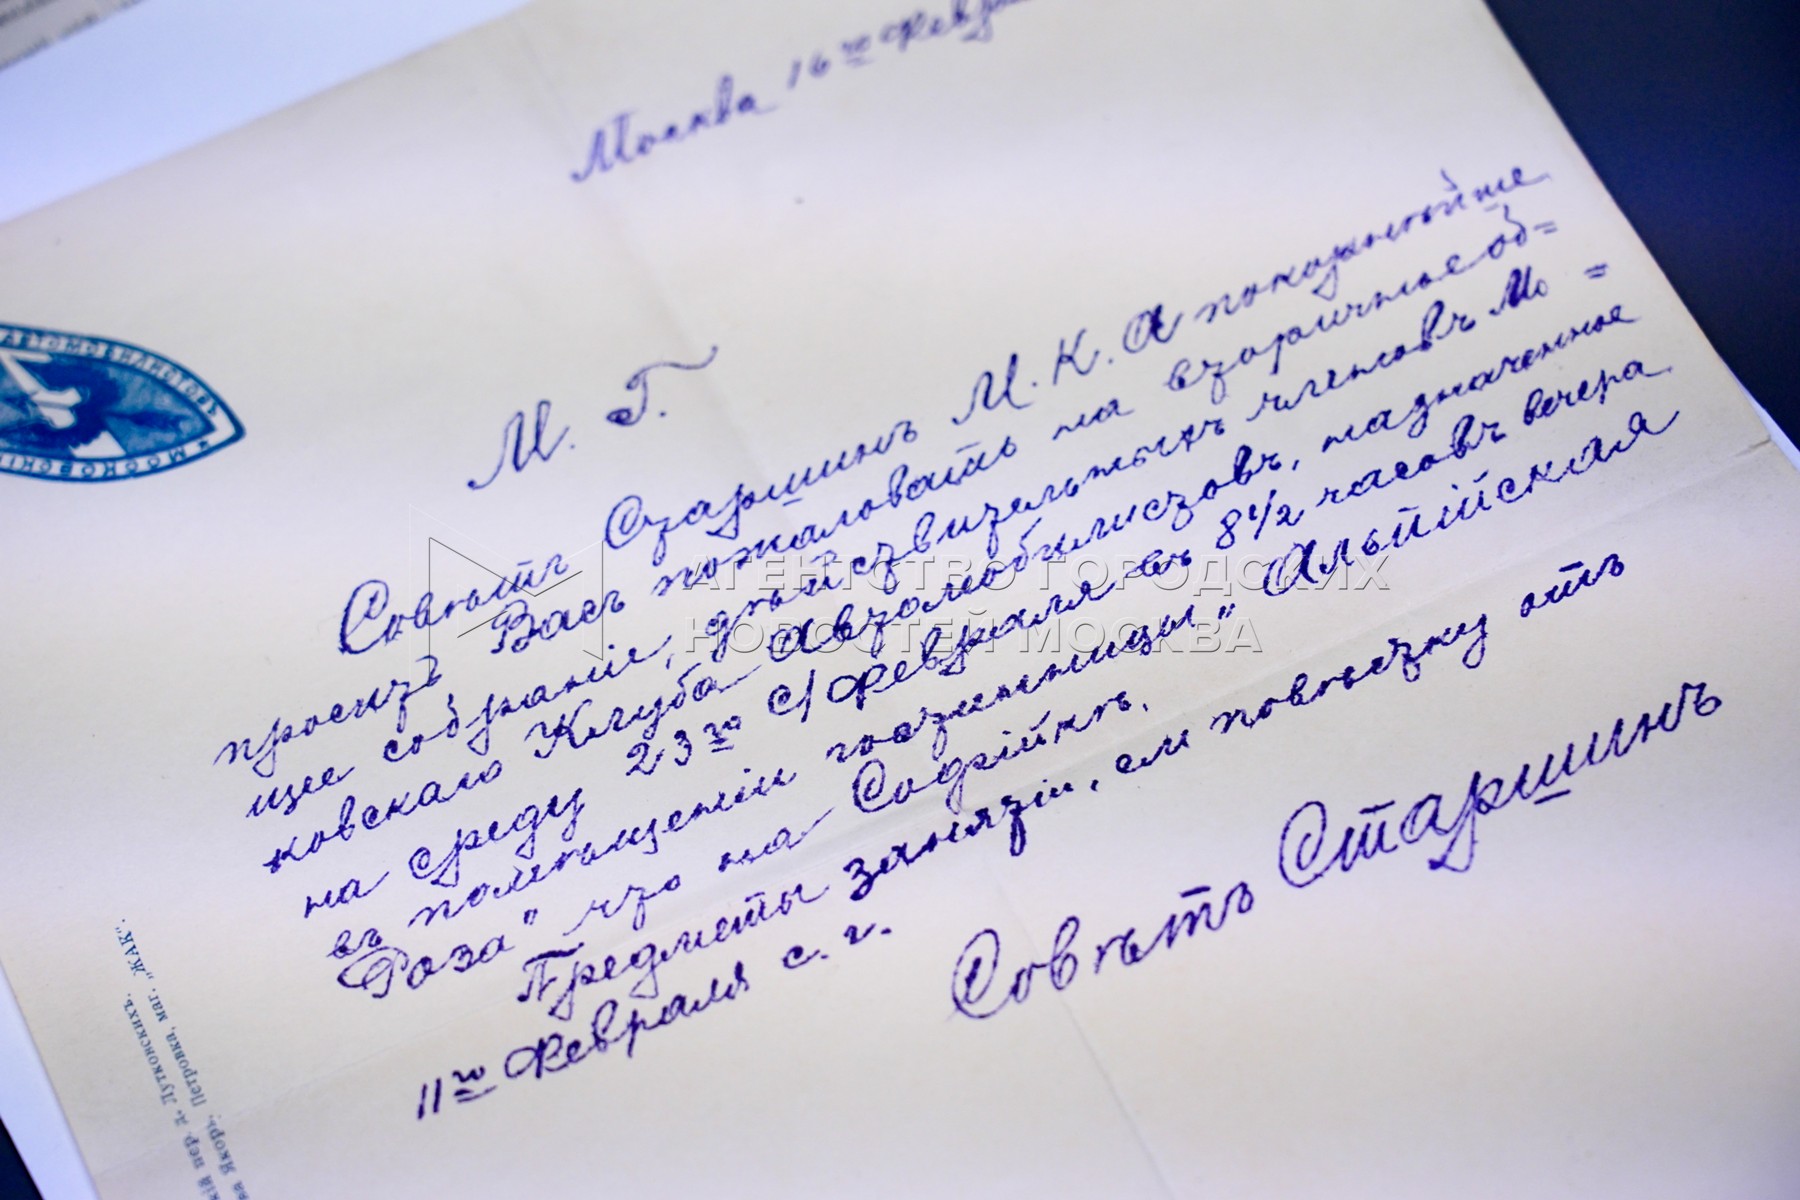 Москва 16го Февра
М. Г.
Совѣтъ Старшинъ М. К. А покорнѣйше
проситъ Васъ пожаловать на вторичное об=
щее собраніе, дѣйствительныхъ членовъ Мо=
ковскаго Клуба Автомобилистовъ, назначенное
на среду 23го с/ Февраля въ 8 1/2 часовъ вечера
въ помѣщеніи гостинницы „Альпійская
Роза" что на Софійкѣ.
Предметы занятій, см повѣстку отъ
11го Февраля с. г.
Совѣтъ Старшинъ
АВТОМОБИЛИСТОВЪ
МОСКОВСКІ
кій пер. д. Лутковскихъ.
ва Якорь, Петровка, маг. „ЖАК".
АГЕНТСТВО ГОРОДСКИХ
НОВОСТЕЙ МОСКВА